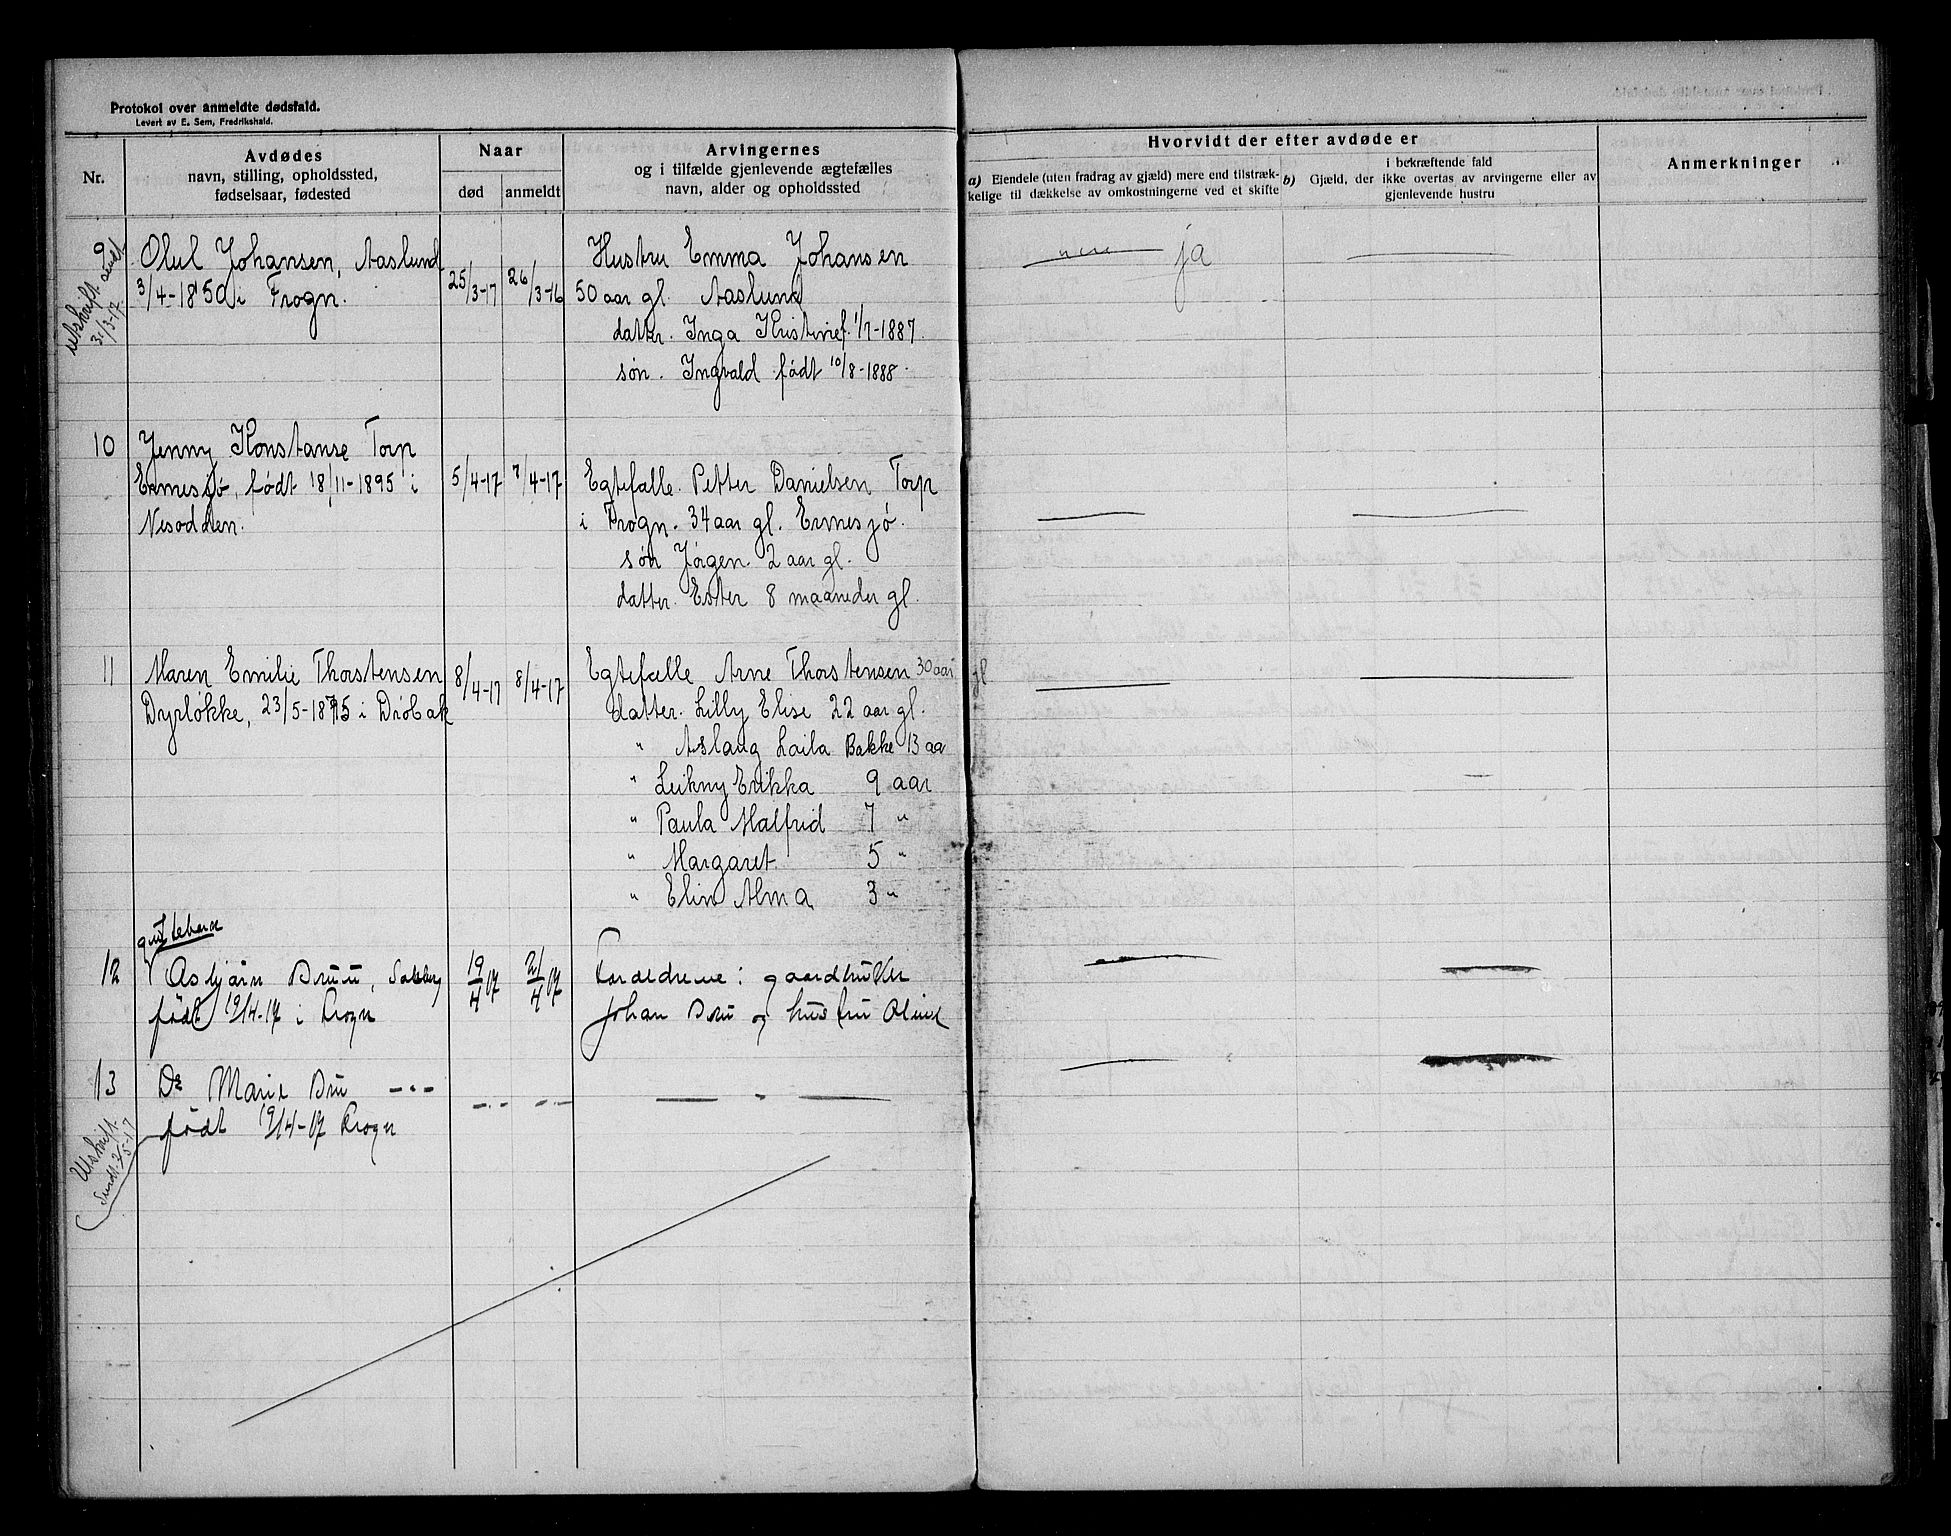 Protokol over anmeldte dødsfald.
Levert av E. Sem, Fredrikshald.
Nr.
Avdødes
navn, stilling, opholdssted,
fødselsaar, fødested
Naar
død
anmeldt
Arvingernes
og i tilfælde gjenlevende ægtefælles
navn, alder og opholdssted
Hvorvidt der efter avdøde er
a) Eiendele (uten fradrag av gjæld) mere end tilstræk-
kelige til dækkelse av omkostningerne ved et skifte
i bekræftende fald
b) Gjæld, der ikke overtas av arvingerne eller av
gjenlevende hustru
Anmerkninger
9
utskrift sendt
31/3-17
Oluf Johansen, Aaslund
3/4-1850 i Frogn.
25/3-17
26/3-16
Hustru Emma Johansen
50 aar gl. Aaslund
datter. Inga Kristine f. 1/7-1887.
søn. Ingvald født 10/8-1888.
ja
10
Jenny Konstanse Torp
Ermesjø, født 18/11-1895 i
Nesodden.
5/4-17
7/4-17
Egtefælle. Petter Danielsen Torp
i Frogn. 34 aar gl. Ermesjø.
søn Jørgen. 2 aar gl.
datter. Ester 8 maaneder gl.
11
Maren Emilie Thorstensen
Dyrløkke, 23/5-1875 i Drøbak
8/4-17
8/4-17
Egtefælle Arne Thorstensen 30 aar gl
datter. Lilly Elise 22 aar gl.
" Aslaug Laila Bakke 13 aa
" Leikny Erikka 9 aar
" Paula Malfrid 7 "
" Margaret 5 "
" Elin Alma 3 "
12
guttebarn
Asbjørn Bruu,
født 19/4-17 i Frogn
19/4 17
21/4 17
Forældrene: gaardbruker
Johan Bru og hustru Oline
13
Do Marie Bru -"-
født 19/4-17 Frogn
- " -
- " -
- " -
Utskrift
sendt 2/5-17